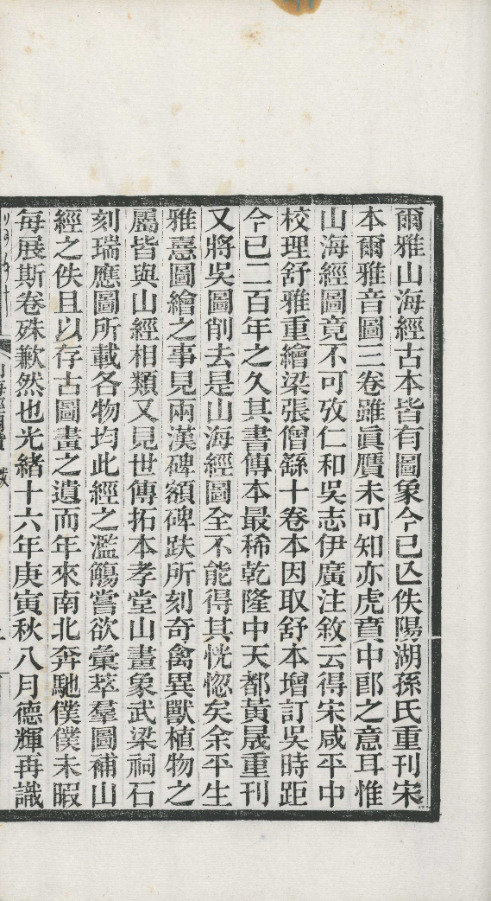 爾雅山海經古本皆有圖象今已亾佚陽湖孫氏重刊宋
本爾雅音圖三卷雖眞贗未可知亦虎賁中郎之意耳惟
山海經圖竟不可攷仁和吳志伊廣注敘云得宋咸平中
校理舒雅重繪梁張僧繇十卷本因取舒本增訂吳時距
今已二百年之久其書傳本最稀乾隆中天都黃晟重刊
又將吳圖削去是山海經圖全不能得其恍惚矣余平生
雅憙圖繪之事見兩漢碑額碑趺所刻奇禽異獸植物之
屬皆與山經相類又見世傳拓本孝堂山畫象武梁祠石
刻瑞應圖所載各物均此經之濫觴嘗欲彙萃羣圖補山
經之佚且以存古圖畫之遺而年來南北奔馳僕僕未暇
每展斯卷殊歉然也光緒十六年庚寅秋八月德輝再識